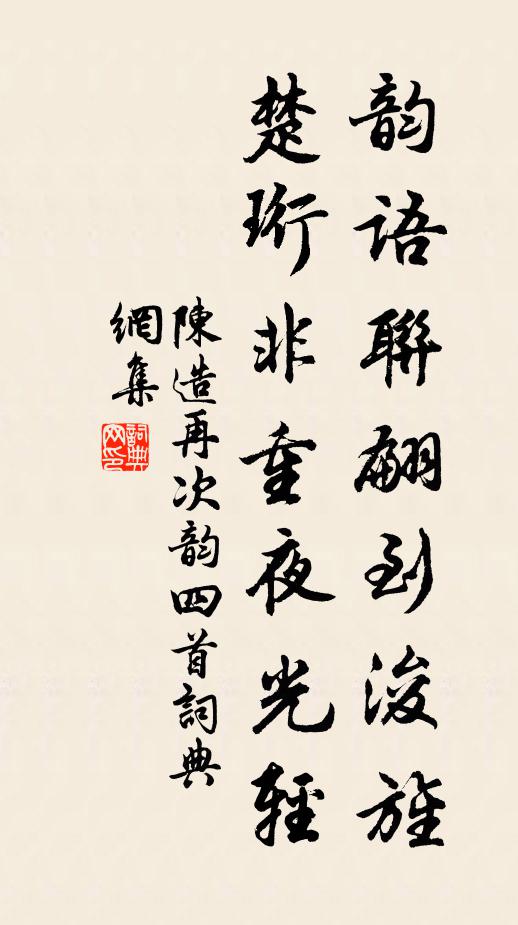 韵語聯翩到浚旌
楚珩非重夜光輕
陳造再次韵四首詞典
網集
詞典網印